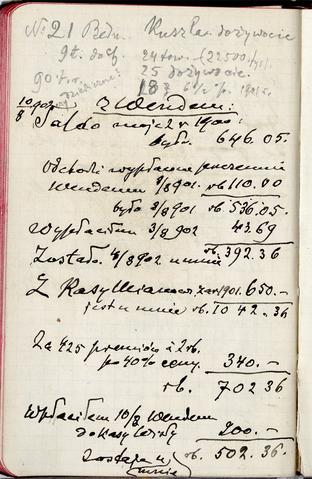 № 21 Bedn. Kuszlan dożywocie
9ł. do cf. 24 tow. (22500 tys.)
90 t.r. 25 dożywocie
18
10/8 902 z Wendem:
Saldo moje 2 r. 1900:
było 646.05.
Odchodzi wypłacone procenta
Wendemu 1/8 901. rb 110.00
było 3/8 901 rb. 536.05.
Wypłaciłem 3/8 902 43.69
Zostało 4/8 902 u mnie rb. 392.36
Z Kasy Mianow. za r. 1901. 650.-
jest u mnie rb. 1042.36
Za 425 premiów à 2 rb.
po 40% ceny. 340.-
rb. 702 36
Wpłaciłem 10/8 Wendem
do Kasy 200.-
Zostaje u mnie rb. 502.36.